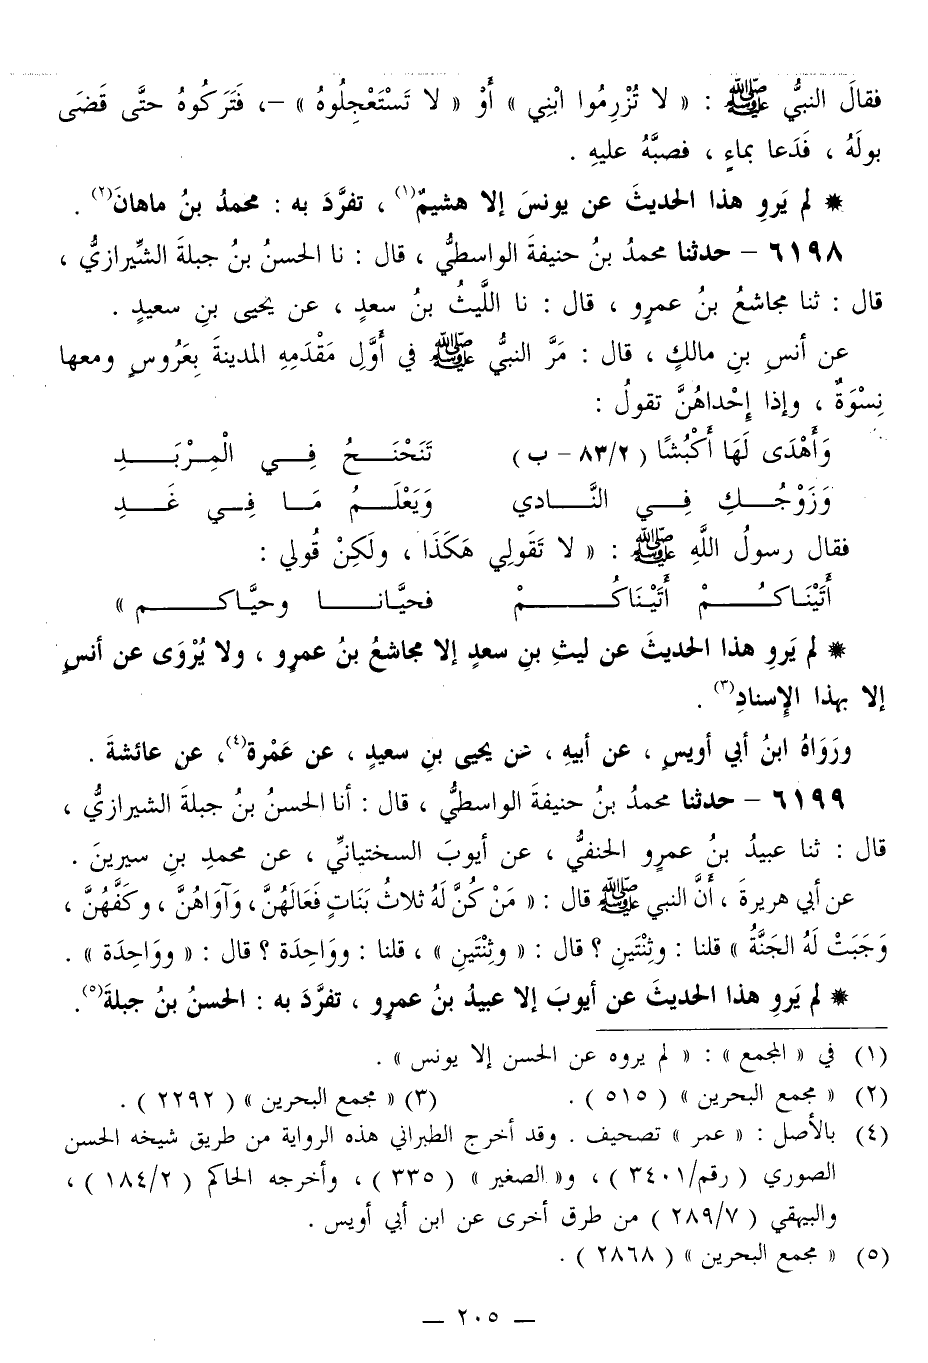 فقالَ النبيُّ ﷺ : « لا تُزْرِموا ابْنِي » أَوْ « لا تَسْتَعْجِلُوهُ » –، فَتَرَكُوهُ حتَّى قَضَى
بولَهُ ، فَدَعا بماءٍ ، فصبَّهُ عليهِ .
* لم يَروِ هذا الحديثَ عن يونسَ إلا هشيمٌ(١) ، تفرَّدَ به : محمدُ بنُ ماهانَ(٢) .
٦١٩٨ – حدثنا محمدُ بنُ حنيفةَ الواسطيُّ ، قال : نا الحسنُ بنُ جبلةَ الشِّيرازيُّ ،
قال : ثنا مجاشعُ بنُ عمرٍو ، قال : نا اللَّيثُ بنُ سعدٍ ، عن يحيى بنِ سعيدٍ .
عن أنسِ بنِ مالكٍ ، قال : مَرَّ النبيُّ ﷺ في أَوَّلِ مَقْدَمِهِ المدينةَ بِعَرُوسٍ ومعها
نِسْوَةٌ ، وإذا إِحْداهُنَّ تقولُ :
وَأَهْدَى لَهَا أَكْبُشًا (٨٣/٢ – ب) تَنَحْنَحُ فِي الْمِرْبَدِ
وَزَوْجُكِ فِي النَّادي وَيَعْلَمُ مَا فِي غَدِ
فقال رسولُ اللَّهِ ﷺ : « لا تَقولِي هَكَذَا ، ولَكِنْ قُولي :
أَتَيْنَاكُمْ أَتَيْنَاكُمْ فحيَّانا وحيَّاكم »
* لم يَروِ هذا الحديثَ عن ليثِ بنِ سعدٍ إلا مجاشعُ بنُ عمرٍو ، ولا يُرْوَى عن أنسٍ
إلا بهذا الإِسنادِ(٣) .
ورَوَاهُ ابنُ أبي أويسٍ ، عن أبيهِ ، عن يحيى بنِ سعيدٍ ، عن عَمْرة(٤)، عن عائشةَ .
٦١٩٩ – حدثنا محمدُ بنُ حنيفةَ الواسطيُّ ، قال : أنا الحسنُ بنُ جبلةَ الشيرازيُّ ،
قال : ثنا عبيدُ بنُ عمرٍو الحنفيُّ ، عن أيوبَ السختيانيِّ ، عن محمدِ بنِ سيرينَ .
عن أبي هريرةَ ، أَنَّ النبي ﷺ قال : « مَنْ كُنَّ لَهُ ثلاثُ بَنَاتٍ فَعَالَهُنَّ، وَآوَاهُنَّ ، وكَفَّهُنَّ ،
وَجَبَتْ لَهُ الجَنَّةُ » قلنا : وثِنْتَينِ ؟ قال : « وثِنْتَينِ » ، قلنا : ووَاحِدَة ؟ قال : « ووَاحِدَة » .
* لم يَروِ هذا الحديثَ عن أيوبَ إلا عبيدُ بنُ عمرٍو ، تفرَّدَ به : الحسنُ بنُ جبلةَ(٥).
(١) في « المجمع » : « لم يروه عن الحسن إلا يونس » .
(٢) « مجمع البحرين » ( ٥١٥ ) . (٣) « مجمع البحرين » ( ٢٢٩٢ ) .
(٤) بالأصل : « عمر » تصحيف . وقد أخرج الطبراني هذه الرواية من طريق شيخه الحسن
الصوري ( رقم/٣٤٠١ ) ، و« الصغير » ( ٣٣٥ ) ، وأخرجه الحاكم ( ١٨٤/٢ ) ،
والبيهقي ( ٢٨٩/٧ ) من طرق أخرى عن ابن أبي أويس .
(٥) « مجمع البحرين » ( ٢٨٦٨ ) .
— ٢٠٥ —